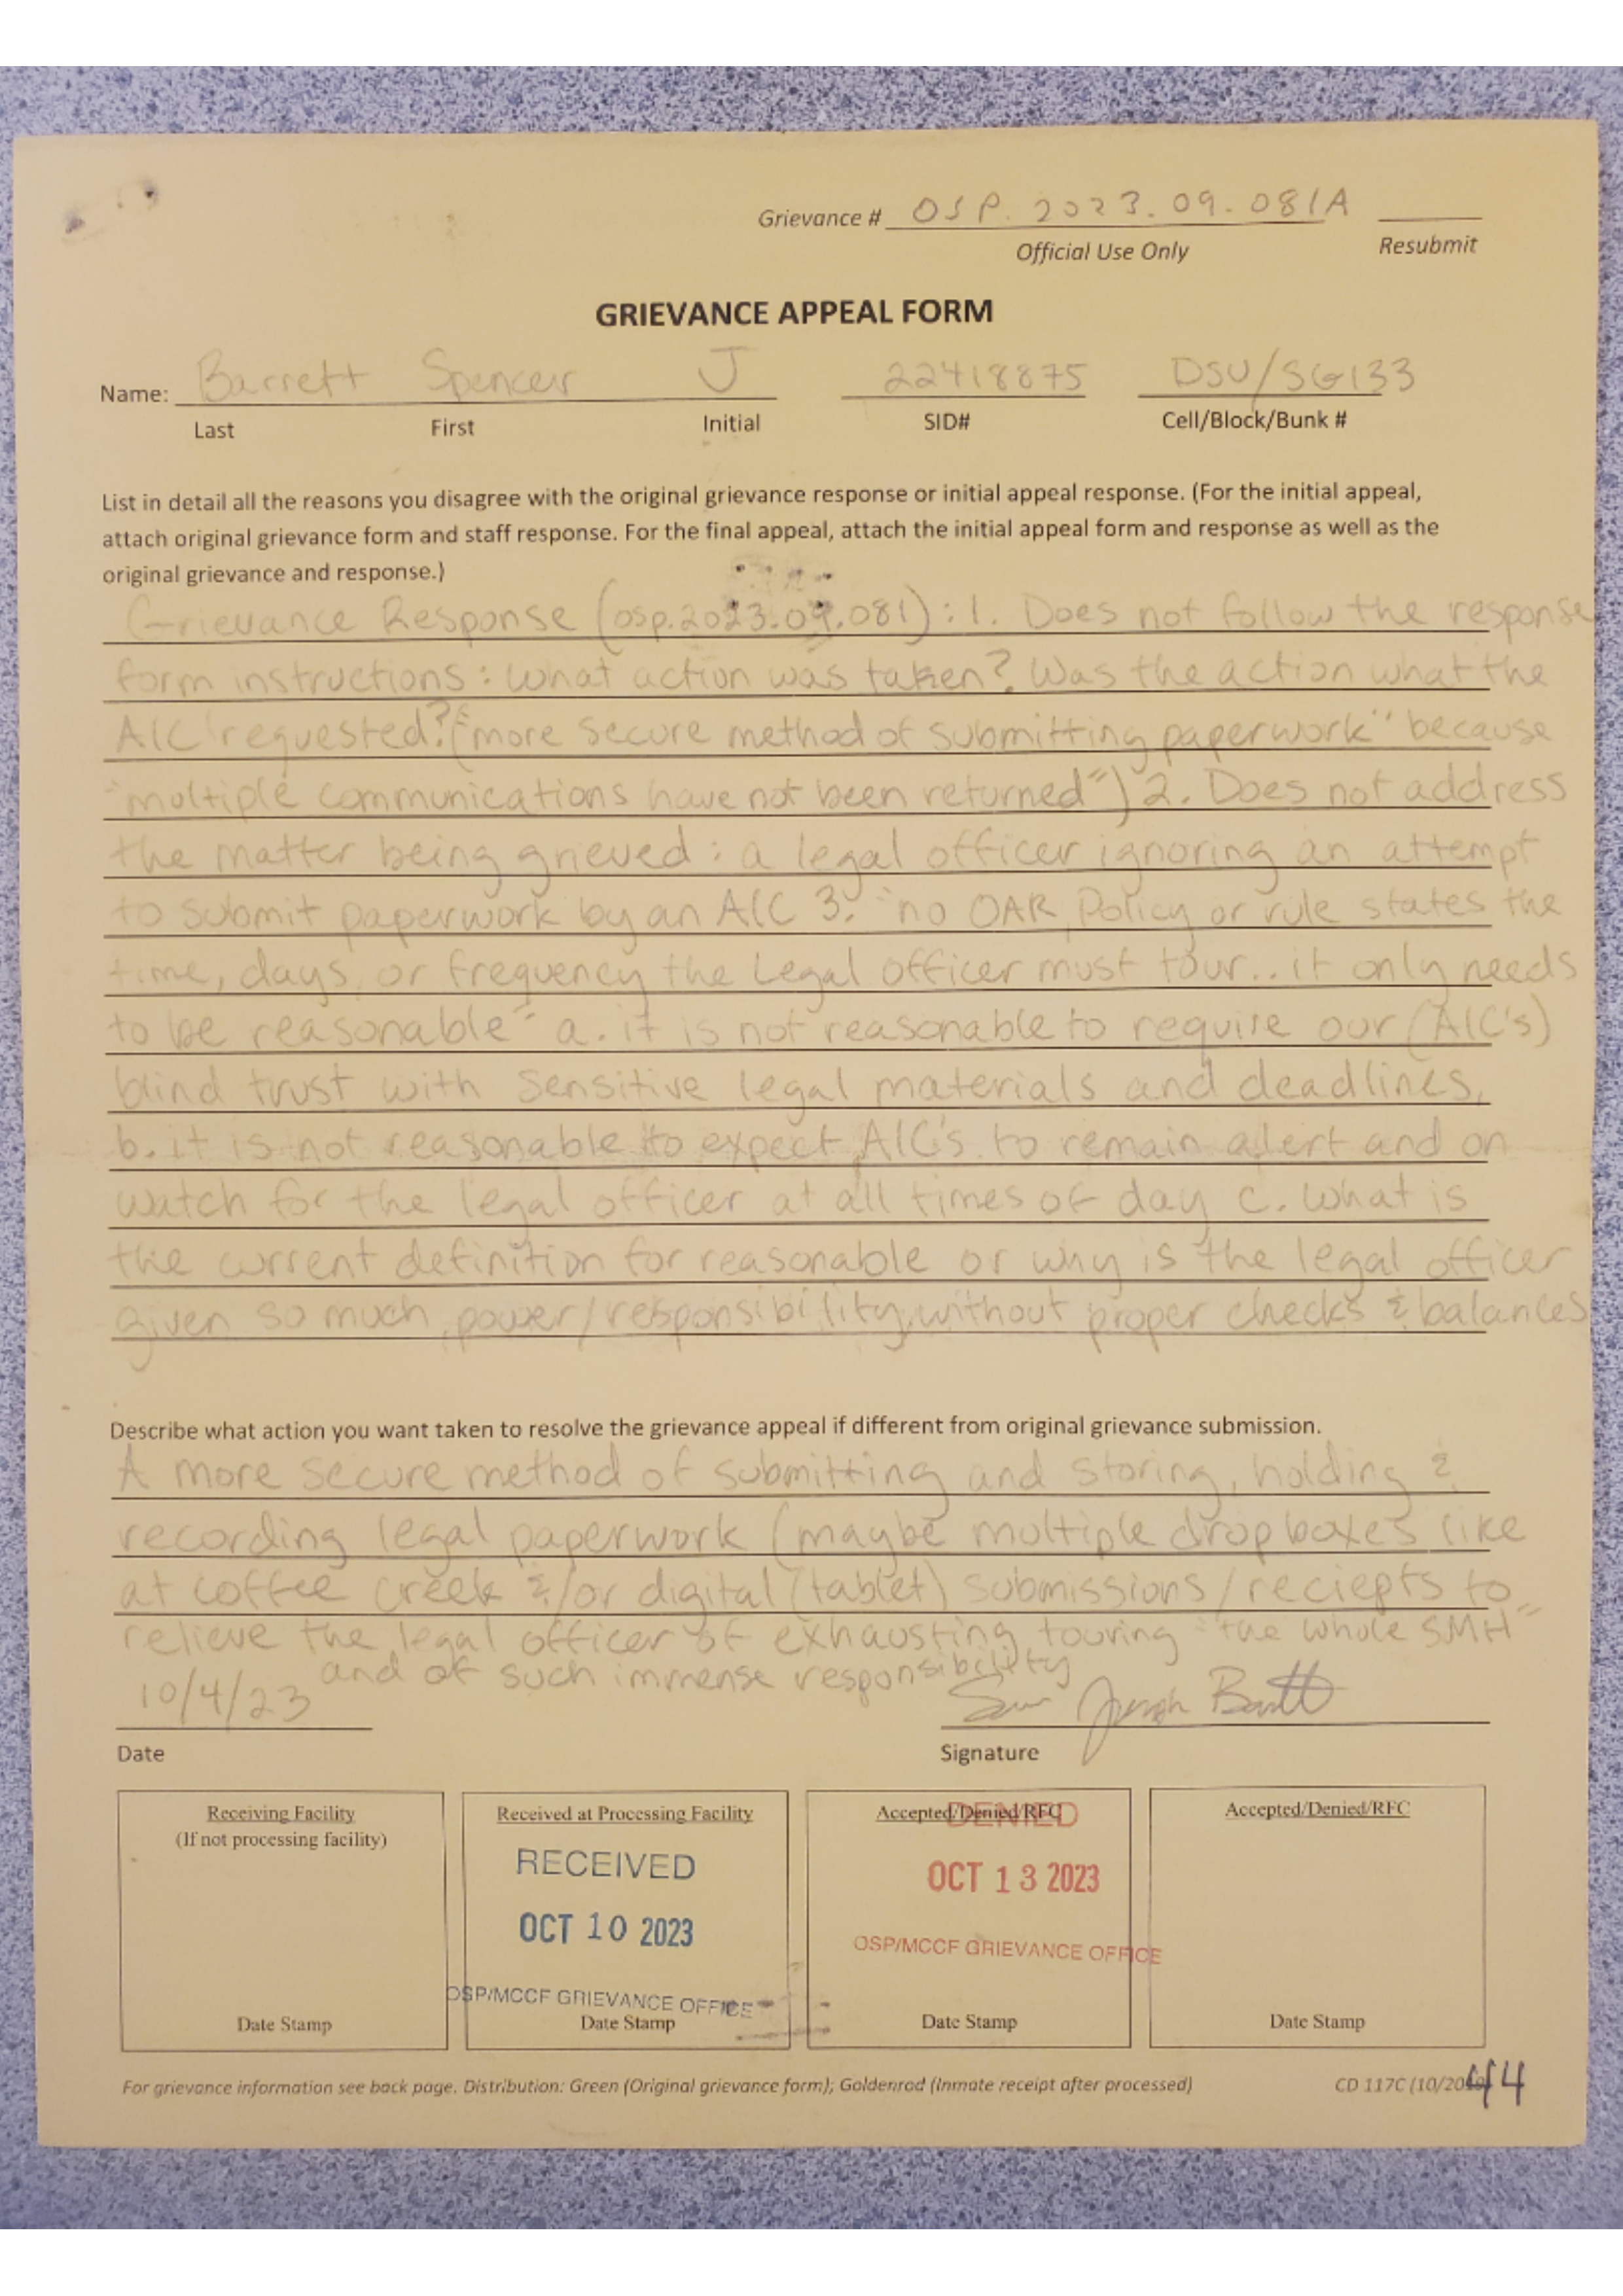 Grievance # OSP.2023.09.081A
Official Use Only Resubmit
GRIEVANCE APPEAL FORM
Name: Barrett Spencer J 22418875 DSU/SG133
Last First Initial SID# Cell/Block/Bunk #
List in detail all the reasons you disagree with the original grievance response or initial appeal response. (For the initial appeal,
attach original grievance form and staff response. For the final appeal, attach the initial appeal form and response as well as the
original grievance and response.)
Grievance Response (osp.2023.09.081): 1. Does not follow the response
form instructions: What action was taken? Was the action what the
AIC requested? ("more secure method of submitting paperwork" because
"multiple communications have not been returned") 2. Does not address
the matter being grieved: a legal officer ignoring an attempt
to submit paperwork by an AIC 3. "no OAR, Policy or rule states the
time, days, or frequency the Legal Officer must tour.. it only needs
to be reasonable" a. it is not reasonable to require our (AIC's)
blind trust with sensitive legal materials and deadlines,
b. it is not reasonable to expect AIC's to remain alert and on
watch for the legal officer at all times of day c. What is
the current definition for reasonable or why is the legal officer
given so much power/responsibility without proper checks & balances
Describe what action you want taken to resolve the grievance appeal if different from original grievance submission.
A more secure method of submitting and storing, holding &
recording legal paperwork (maybe multiple dropboxes like
at coffee creek &/or digital (tablet) submissions/reciepts to
relieve the legal officer of exhausting touring "the whole SMH"
and of such immense responsibility
10/4/23 Joseph Barrett
Date Signature
Receiving Facility
(If not processing facility)
Date Stamp
Received at Processing Facility
RECEIVED
OCT 10 2023
OSP/MCCF GRIEVANCE OFFICE
Date Stamp
Accepted/Denied/RFC
DENIED
OCT 13 2023
OSP/MCCF GRIEVANCE OFFICE
Date Stamp
Accepted/Denied/RFC
Date Stamp
For grievance information see back page. Distribution: Green (Original grievance form); Goldenrod (Inmate receipt after processed) CD 117C (10/20